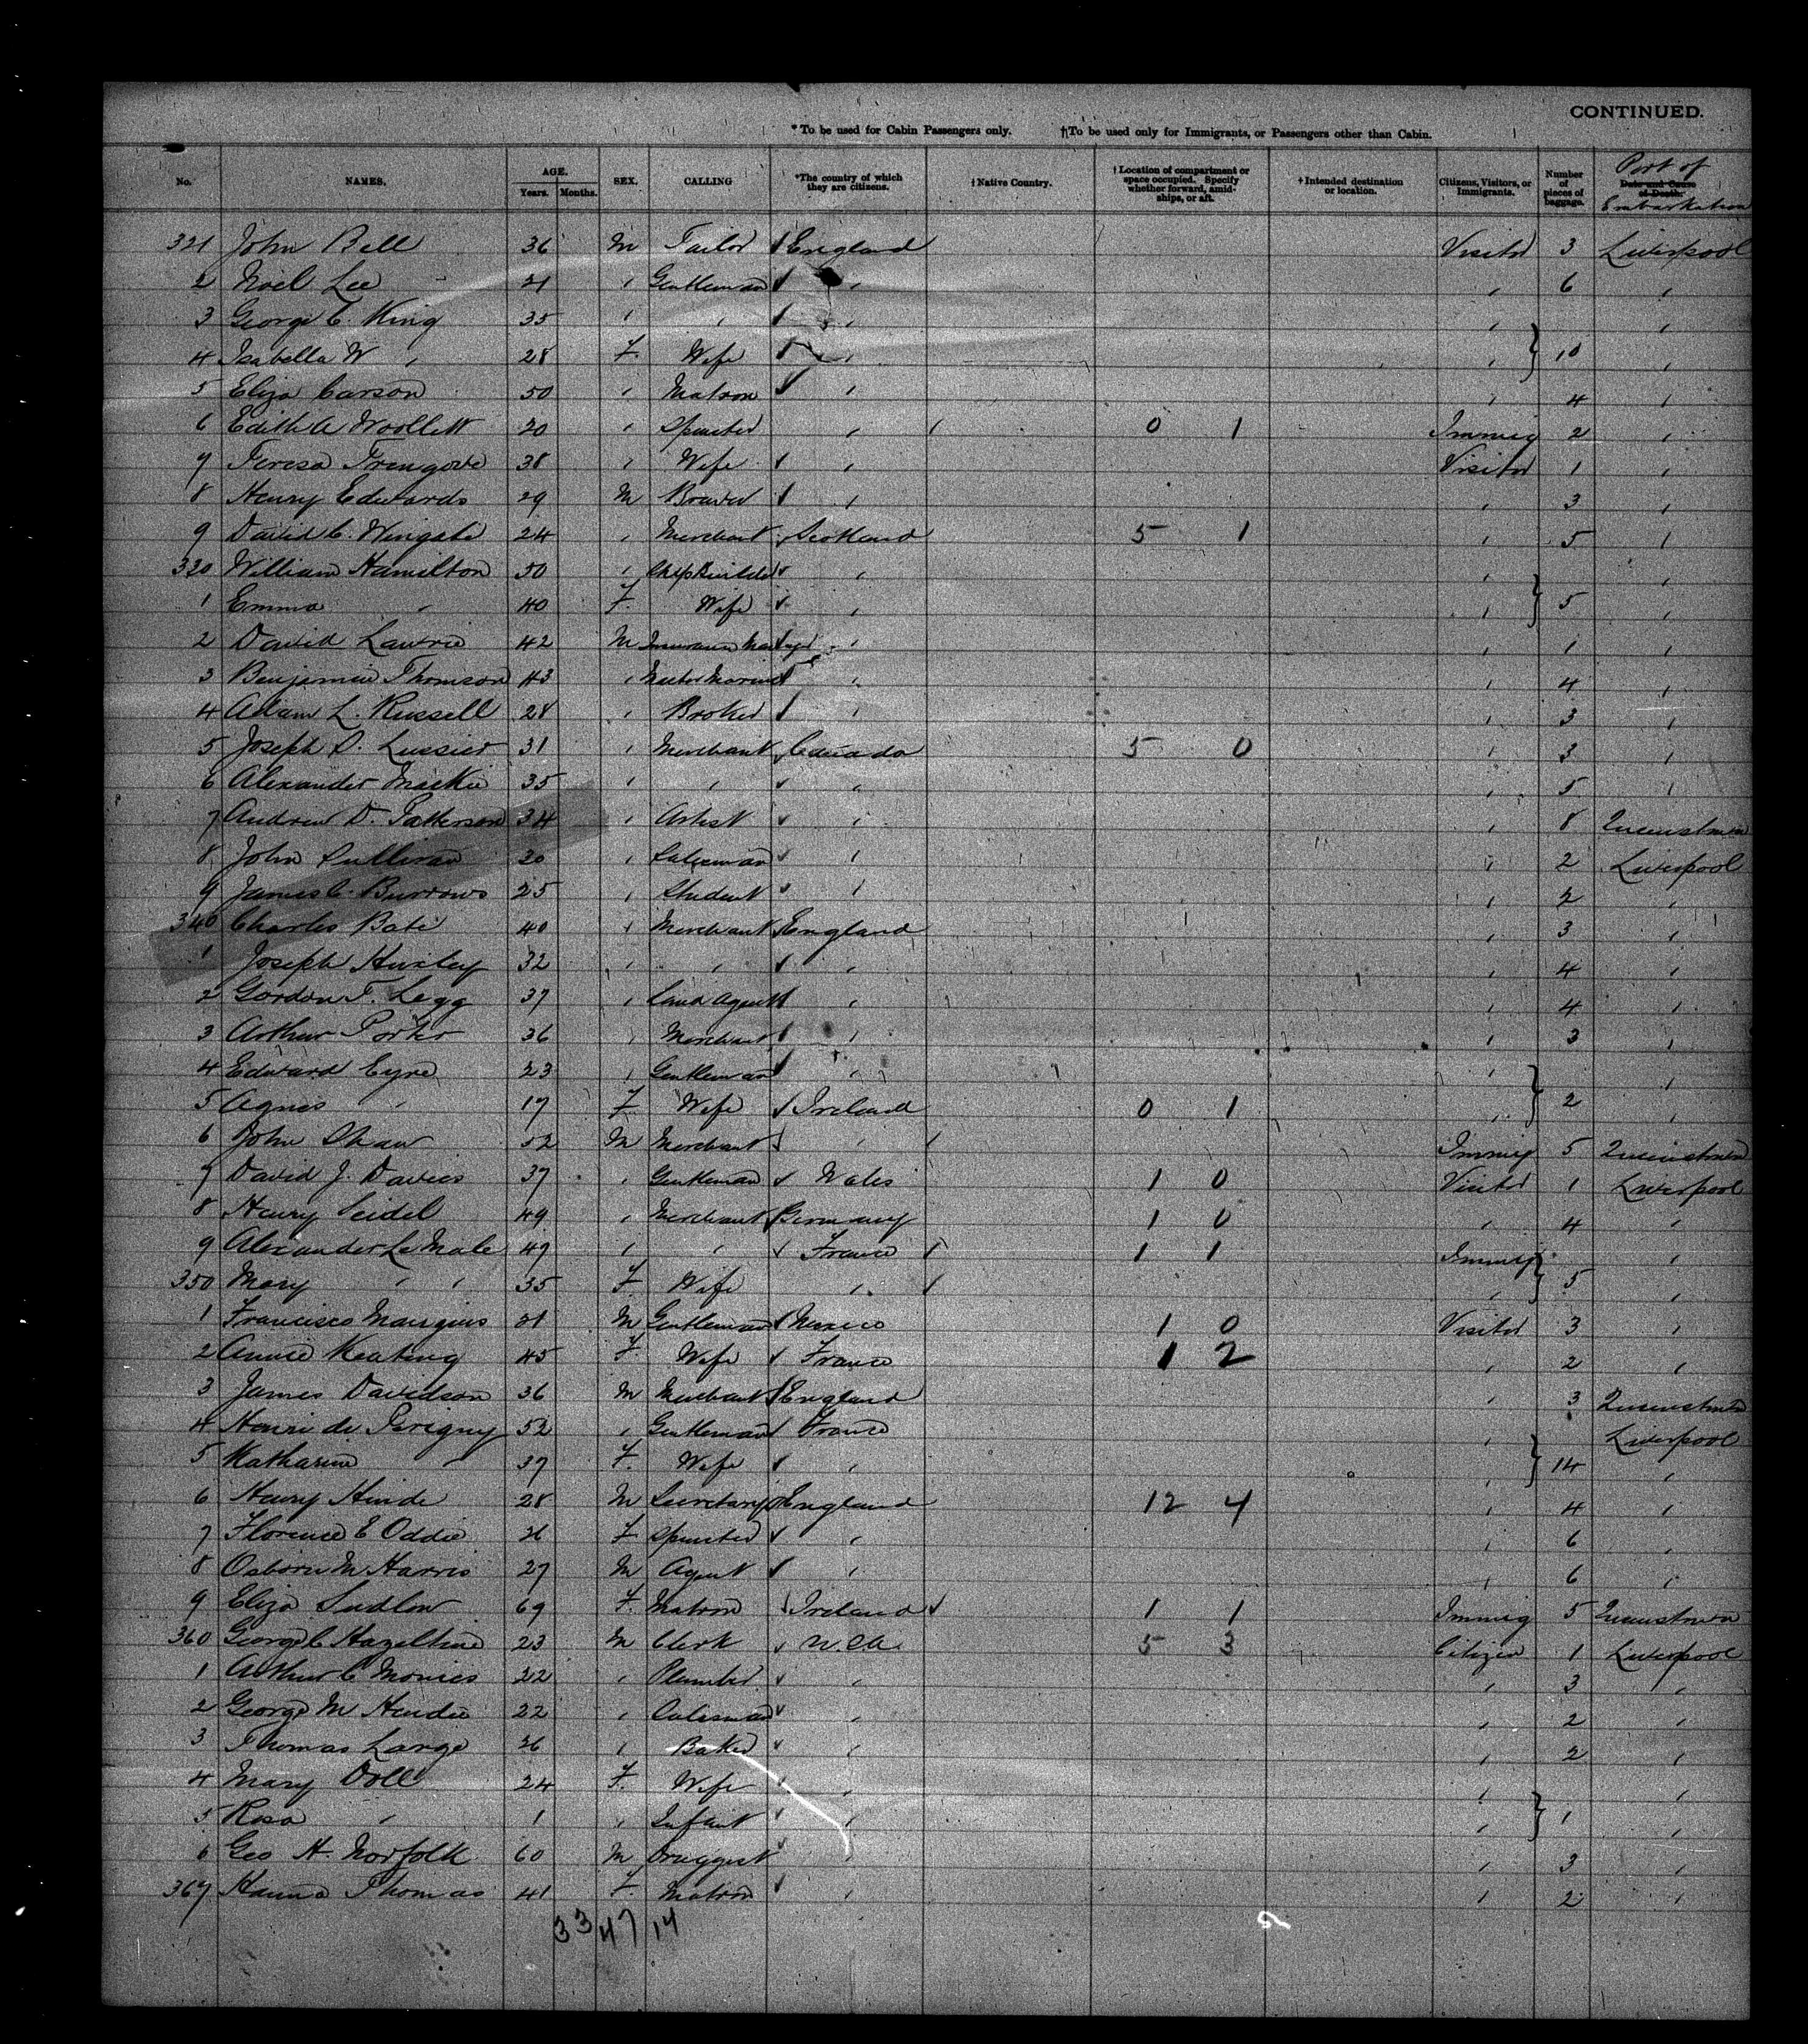 CONTINUED.
* To be used for Cabin Passengers only. † To be used only for Immigrants, or Passengers other than Cabin.
No. NAMES. AGE. Years. Months. SEX. CALLING *The country of which they are citizens. † Native Country. † Location of compartment or space occupied. Specify whether forward, amidships, or aft. † Intended destination or location. Citizens, Visitors, or Immigrants. Number of pieces of baggage. Date and Cause of Death. Port of Embarkation
321 John Bell 36 M Tailor England Visitor 3 Liverpool
2 Noel Lee 21 " Gentleman " " 6 "
3 George C. King 35 " " " " "
4 Isabella W " 28 F. Wife " " 10 "
5 Eliza Carson 50 " Matron " " 4 "
6 Edith A Woollett 20 " Spinster " 0 1 Immig 2 "
7 Teresa Trengove 38 " Wife " Visitor 1 "
8 Henry Edwards 29 M Brewer " " 3 "
9 David C. Wingate 24 " Merchant Scotland 5 1 " 5 "
330 William Hamilton 50 " Shipbuilder " " "
1 Emma " 40 F. Wife " " 5 "
2 David Lawrie 42 M Insurance Manager " " 1 "
3 Benjamin Thomson 43 " Master Mariner " " 4 "
4 Adam L. Russell 28 " Broker " " 3 "
5 Joseph S. Lussier 31 " Merchant Canada 5 0 " 3 "
6 Alexander Mackie 35 " " " " 5 "
7 Andrew D. Patterson 34 " Artist " " 8 Queenstown
8 John Sullivan 30 " Salesman " " 2 Liverpool
9 James C. Burrows 25 " Student " " 2 "
340 Charles Bate 40 " Merchant England " 3 "
1 Joseph Huxley 32 " " " " 4 "
2 Gordon T. Legg 37 " Land Agent " " 4 "
3 Arthur Porter 36 " Merchant " " 3 "
4 Edward Eyre 23 " Gentleman " " "
5 Agnes " 17 F Wife Ireland 0 1 " 2 "
6 John Shaw 52 M Merchant " Immig 5 Queenstown
7 David J. Davies 37 " Gentleman Wales 1 0 Visitor 1 Liverpool
8 Henry Seidel 49 " Merchant Germany 1 0 " 4 "
9 Alexander Le Male 49 " " France 1 1 Immig "
350 Mary " " 35 F. Wife " " 5 "
1 Francisco 31 M Gentleman Mexico 1 0 Visitor 3 "
2 Annie Keating 45 F. Wife France 1 2 " 2 "
3 James Davidson 36 M Merchant England " 3 Queenstown
4 Henri de Perigny 52 " Gentleman France " Liverpool
5 Katharine " 37 F. Wife " " 14 "
6 Henry Hinde 28 M Secretary England 12 4 " 4 "
7 Florence E Oddie 26 F Spinster " " 6 "
8 Osborn M Harris 27 M Agent " " 6 "
9 Eliza Sudlow 69 F. Matron Ireland 1 1 Immig 5 Queenstown
360 George C Hazeltine 23 M Clerk U.S.A. 5 3 Citizen 1 Liverpool
1 Arthur C Monies 22 " Plumber " " 3 "
2 George M Hendie 22 " Salesman " " 2 "
3 Thomas Large 26 " Baker " " 2 "
4 Mary Doll 24 F. Wife " " "
5 Rosa " 1 " Infant " " 1 "
6 Geo H. Norfolk 60 M Druggist " " 3 "
367 Hanna Thomas 41 F. Matron " " 2 "
33 47 14